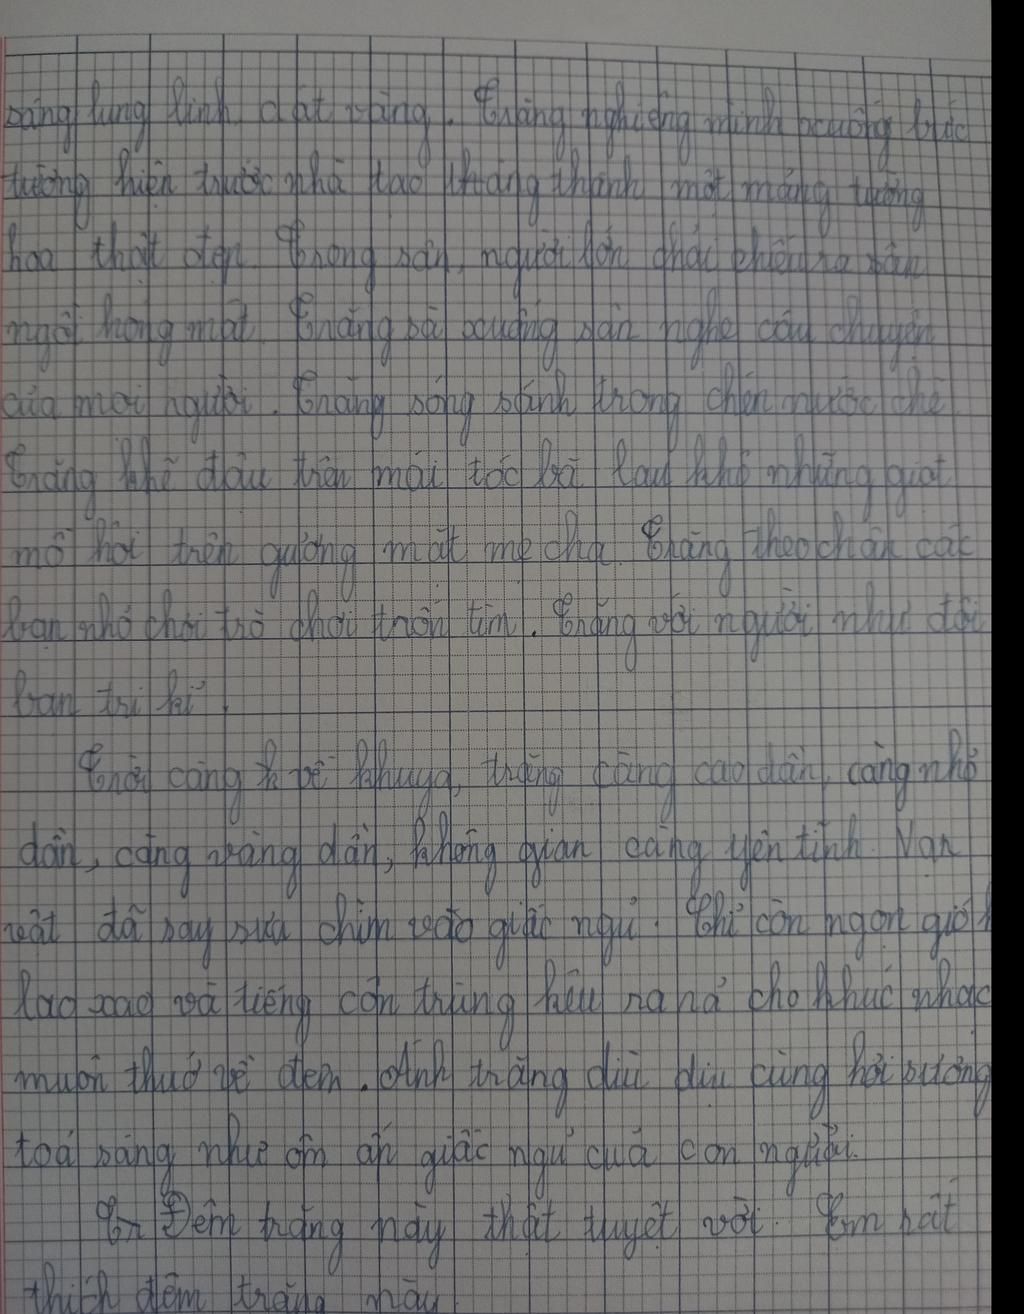 sáng lung linh dát vàng. Trăng nghiêng mình xuống bức
tường hiện trước nhà tạo thành một mảng tường
hoa thật đẹp. Trong sân, người lớn phải chiếu ra sân
ngồi hóng mát. Trăng sà xuống sân nghe câu chuyện
của mọi người. Trăng sóng sánh trong chén nước chè
Trăng khẽ đậu trên mái tóc bà lau khô những giọt
mồ hôi trên gương mặt mẹ cha. Trăng theo chân các
bạn nhỏ chơi trò chơi trốn tìm. Trăng với người như đôi
bạn tri kỉ.
Trời càng về khuya, trăng càng cao dần, càng nhỏ
dần, càng vàng dần, không gian càng yên tĩnh. Vạn
vật đã say sưa chìm vào giấc ngủ. Chỉ còn ngọn gió
lao xao và tiếng côn trùng kêu ra rả cho khúc nhạc
muôn thuở về đem. Ánh trăng dịu dịu cùng hơi sương
toả sáng như ôm ấp giấc ngủ cuả con người.
Đêm trăng này thật tuyệt vời. Em rất
thích đêm trăng này.